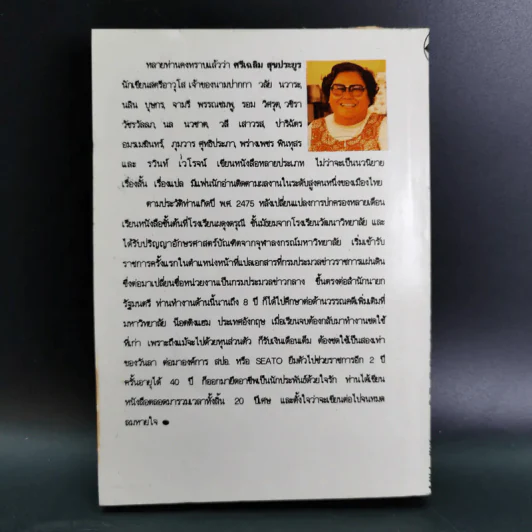 หลายท่านคงทราบแล้วว่า ศรีเฉลิม สุขประยูร
นักเขียนสตรีอาวุโส เจ้าของนามปากกา วลัย นวาระ,
นลิน บุษกร, จามรี พรรณชมพู, รอม วิศรุต, วชิรา
วัชรวัลลภ, นล นวชาต, วลี เสาวรส, ปาริฉัตร
อมรเมธินทร์, ภูมวาร ศุทธิประภา, พร่างเพชร พินทุสร
และ รวินท์ เวโรจน์ เขียนหนังสือหลายประเภท ไม่ว่าจะเป็นนวนิยาย
เรื่องสั้น เรื่องแปล มีแฟนนักอ่านติดตามผลงานในระดับสูงคนหนึ่งของเมืองไทย
ตามประวัติท่านเกิดปี พ.ศ. 2475 หลังเปลี่ยนแปลงการปกครองหลายเดือน
เรียนหนังสือชั้นต้นที่โรงเรียนผดุงดรุณี ชั้นมัธยมจากโรงเรียนวัฒนาวิทยาลัย และ
ได้รับปริญญาอักษรศาสตร์บัณฑิตจากจุฬาลงกรณ์มหาวิทยาลัย เริ่มเข้ารับ
ราชการครั้งแรกในตำแหน่งหน้าที่แปลเอกสารที่กรมประมวลข่าวราชการแผ่นดิน
ซึ่งต่อมาเปลี่ยนชื่อหน่วยงานเป็นกรมประมวลข่าวกลาง ขึ้นตรงต่อสำนักนายก
รัฐมนตรี ท่านทำงานด้านนี้นานถึง 8 ปี ก็ได้ไปศึกษาต่อด้านวรรณคดีเพิ่มเติมที่
มหาวิทยาลัย น็อตติงแฮม ประเทศอังกฤษ เมื่อเรียนจบต้องกลับมาทำงานชดใช้
ที่เก่า เพราะถึงแม้จะไปด้วยทุนส่วนตัว ก็รับเงินเดือนเต็ม ต้องชดใช้เป็นสองเท่า
ของวันลา ต่อมาองค์การ สปอ. หรือ SEATO ยืมตัวไปช่วยราชการอีก 2 ปี
ครั้นอายุได้ 40 ปี ก็ออกมายึดอาชีพเป็นนักประพันธ์ด้วยใจรัก ท่านได้เขียน
หนังสือตลอดมารวมเวลาทั้งสิ้น 20 ปีเศษ และตั้งใจว่าจะเขียนต่อไปจนหมด
ลมหายใจ ●